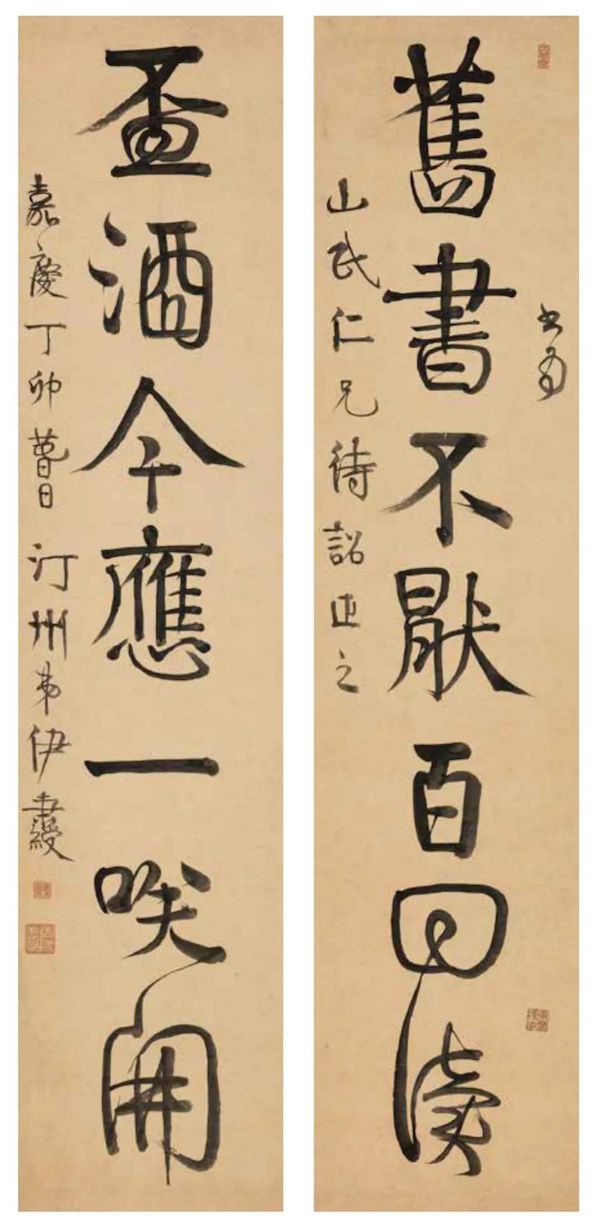 書為
舊書不猒百回讀
山民仁兄待詔正之
盃酒今應一咲開
嘉慶丁卯春日汀州弟伊秉綬